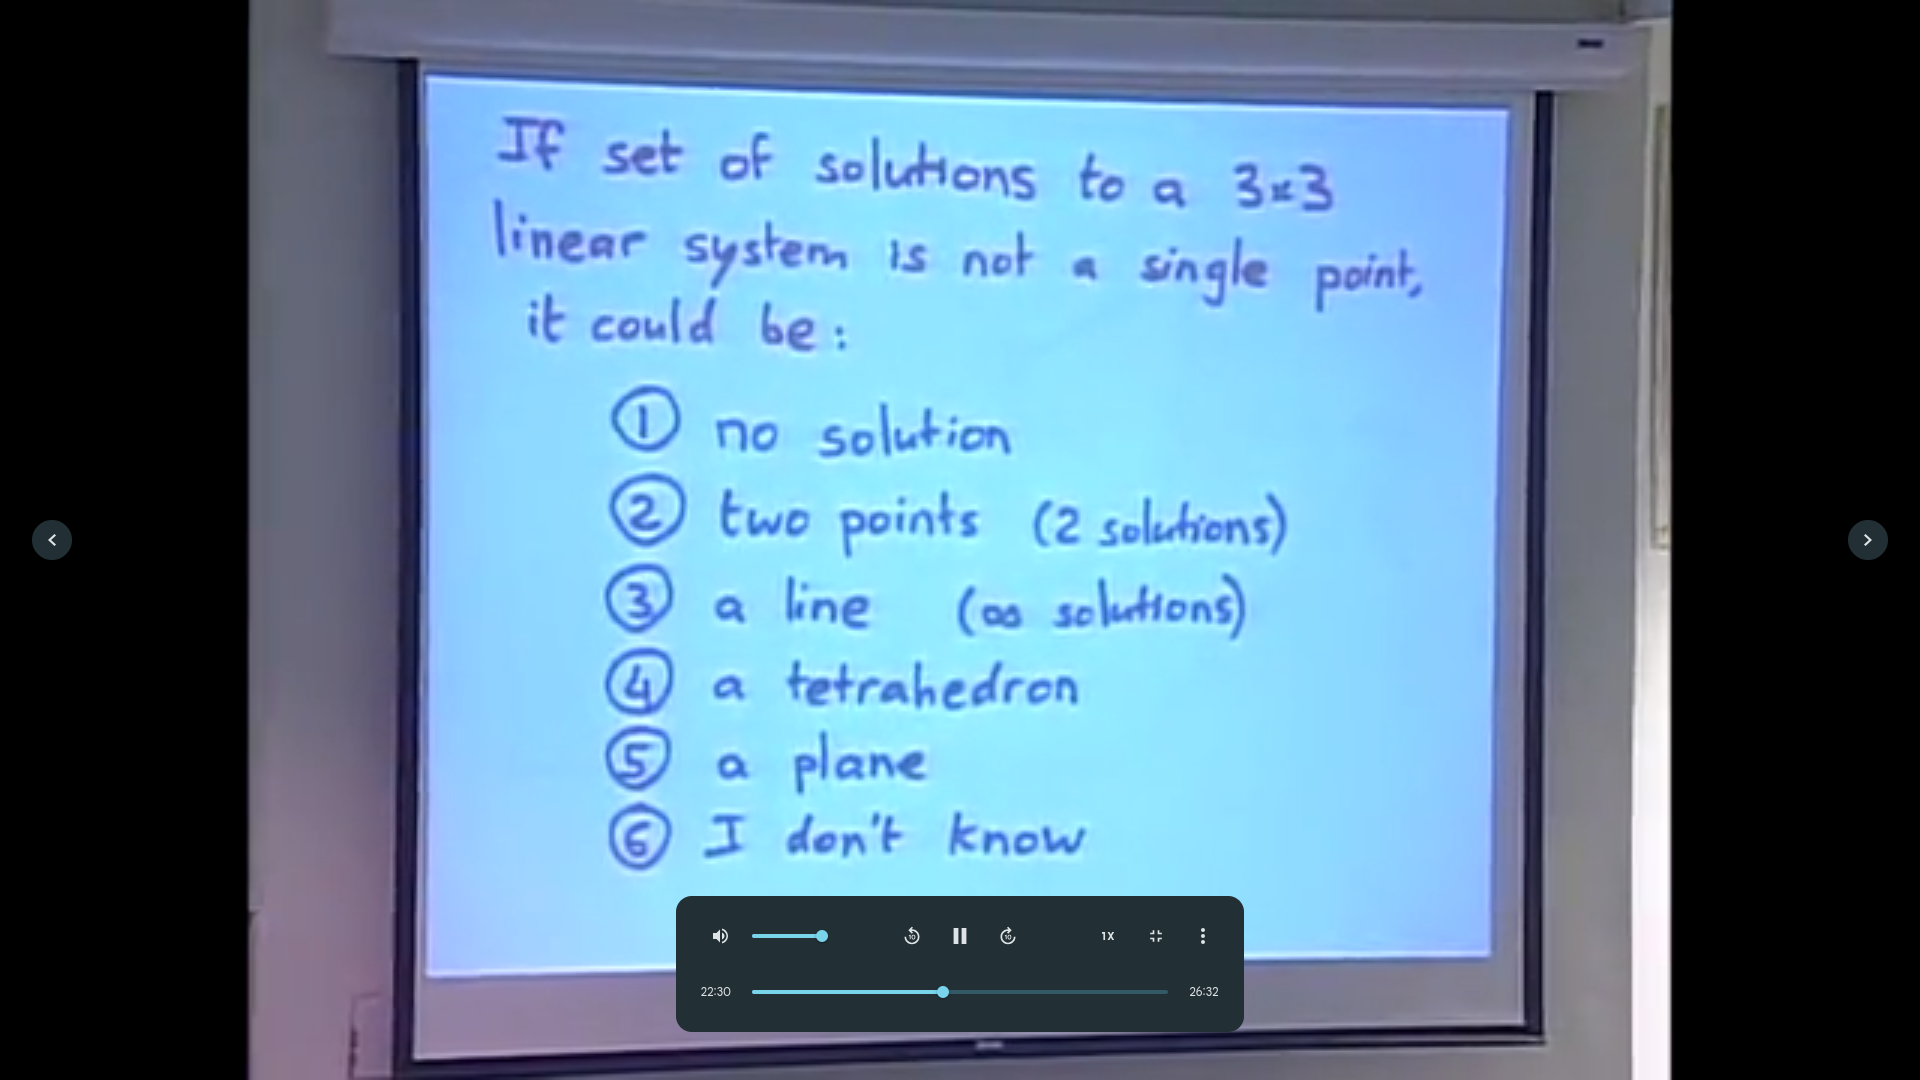 If set of solutions to a 3×3
linear system is not a single point,
it could be:
① no solution
② two points (2 solutions)
③ a line (∞ solutions)
④ a tetrahedron
⑤ a plane
⑥ I don't know
10
10
1X
22:30
26:32